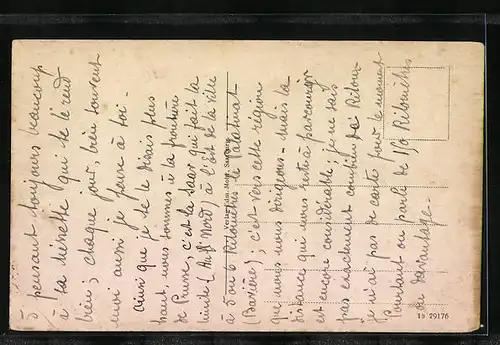 5 pensant toujours beaucoup
à ta minette qui te le rend
bien ; chaque jour, bien souvent
moi aussi je pense à toi -
Ainsi que je te le disais plus
haut, nous sommes à la frontière
de Prusse, c'est la Saar qui fait la
limite (au Nord) à l'est de la ville
à 5 ou 6 kilomètres le Palatinat
(Bavière) ; c'est vers cette région
que nous nous dirigeons - mais la
distance qui nous reste à parcourir
est encore considérable ; je ne sais
pas exactement combien de kilom-
je n'ai pas de carte pour le moment
Pourtant on parle de 150 kilomètres
ou davantage -
19 29176